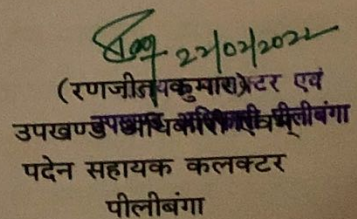 22/02/2022
(रणजीत कुमार)
उपखण्ड अधिकारी एवम्
पदेन सहायक कलक्टर
पीलीबंगा